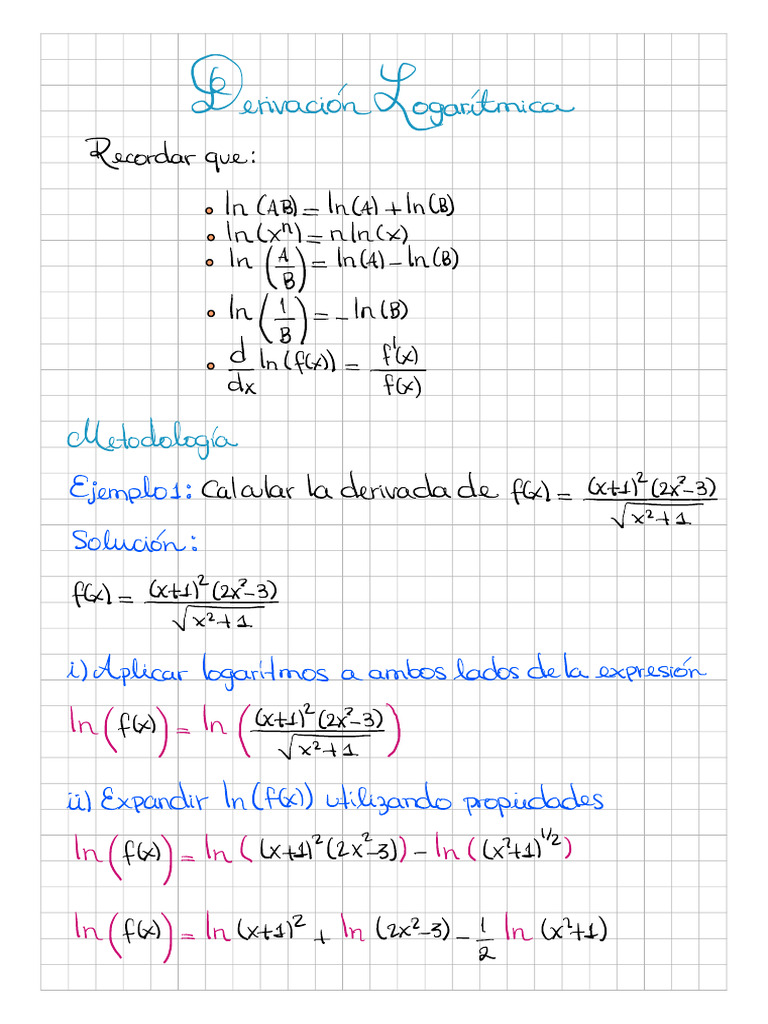 Derivación Logarítmica
Recordar que:
• ln (AB) = ln(A) + ln(B)
• ln(xⁿ) = n ln(x)
• ln (A/B) = ln(A) - ln(B)
• ln (1/B) = - ln(B)
• d/dx ln(f(x)) = f'(x)/f(x)
Metodología
Ejemplo 1: Calcular la derivada de f(x) = (x+1)²(2x²-3)/√(x²+1)
Solución:
f(x) = (x+1)²(2x²-3)/√(x²+1)
i) Aplicar logarítmos a ambos lados de la expresión
ln(f(x)) = ln((x+1)²(2x²-3)/√(x²+1))
ii) Expandir ln(f(x)) utilizando propiedades
ln(f(x)) = ln((x+1)²(2x²-3)) - ln((x²+1)^1/2)
ln(f(x)) = ln(x+1)² + ln(2x²-3) - 1/2 ln(x²+1)